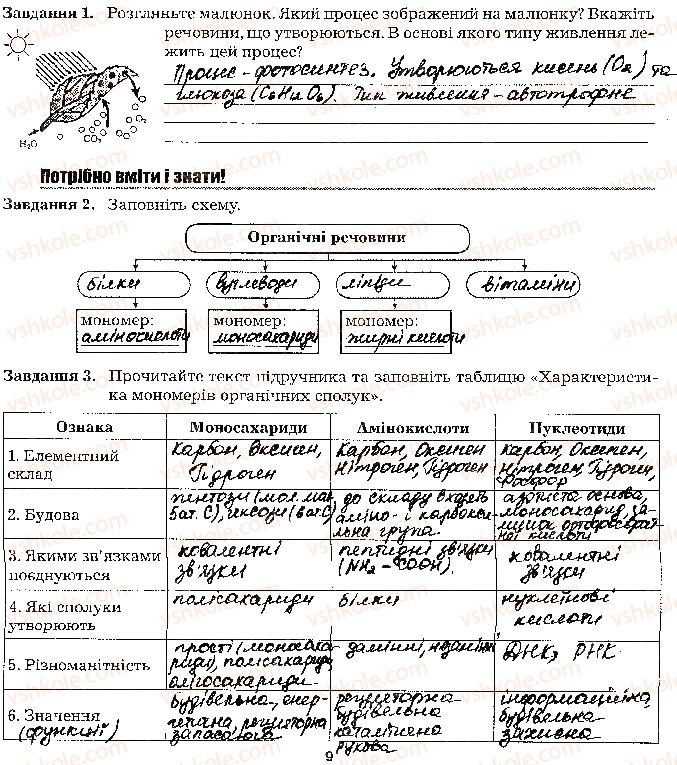 Завдання 1. Розгляньте малюнок. Який процес зображений на малюнку? Вкажіть
речовини, що утворюються. В основі якого типу живлення ле-
жить цей процес?
Процес - фотосинтез. Утворюються кисень (O₂) та
глюкоза (C₆H₁₂O₆). Тип живлення - автотрофне
H₂O
CO₂
O₂
Потрібно вміти і знати!
Завдання 2. Заповніть схему.
Органічні речовини
білки вуглеводи ліпіди вітаміни
мономер: мономер: мономер:
амінокислоти моносахариди жирні кислоти
Завдання 3. Прочитайте текст підручника та заповніть таблицю «Характеристи-
ка мономерів органічних сполук».
Ознака Моносахариди Амінокислоти Нуклеотиди
1. Елементний
склад
Карбон, Оксиген,
Гідроген
Карбон, Оксиген
Нітроген, Гідроген
Карбон, Оксиген,
Нітроген, Гідроген,
Фосфор
2. Будова
пентози (мол. має
5 ат. С), гексози (6 ат. С)
до складу входять
аміно- і карбокси-
льна група.
азотиста основа,
моносахарид, за-
лишок ортофосфат-
ної кислоти
3. Якими зв'язками
поєднуються
ковалентні
зв'язки
пептидні зв'язки
(NH₂ - COOH).
ковалентні
зв'язки
4. Які сполуки
утворюють
полісахариди
білки
нуклеїнові
кислоти
5. Різноманітність
прості (моносаха-
риди), полісахариди,
олігосахариди.
замінні, незамінні
ДНК, РНК
6. Значення
(функції)
будівельна, енер-
гетична, регуляторна
запасаюча
регуляторна
будівельна
каталітична
рухова
інформаційна,
будівельна
захисна
9
vshkole.com